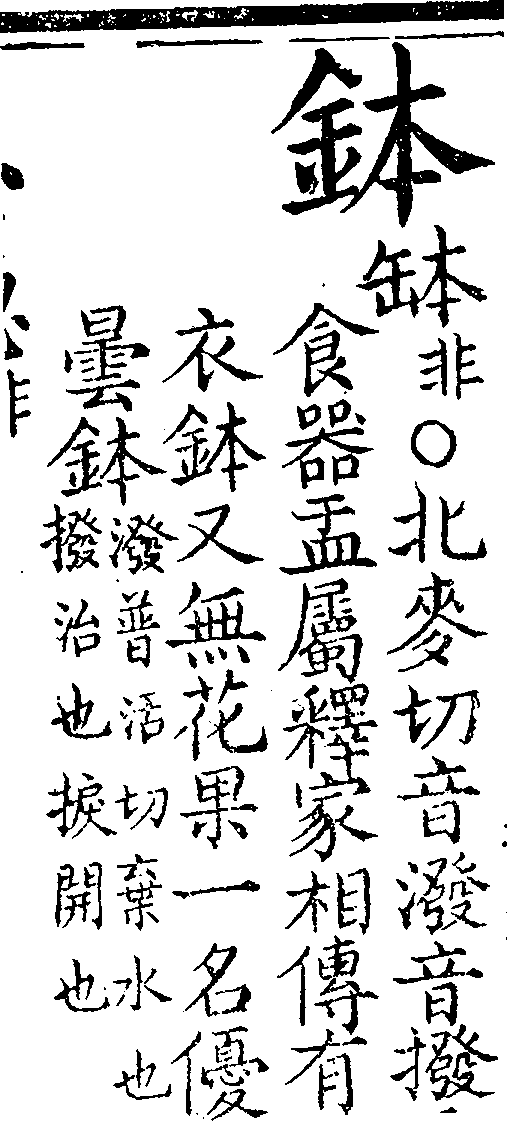 鉢
缽非○北麥切音潑音撥
食器盂屬釋家相傳有
衣鉢又無花果一名優
曇鉢
潑普活切棄水也
撥治也捩開也
非